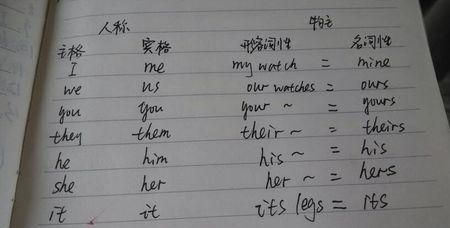 人称 物主
主格 宾格 形容词性 名词性
I me my watch = mine
we us our watches = ours
you you your ~ = yours
they them their ~ = theirs
he him his ~ = his
she her her ~ = hers
it it its legs = its